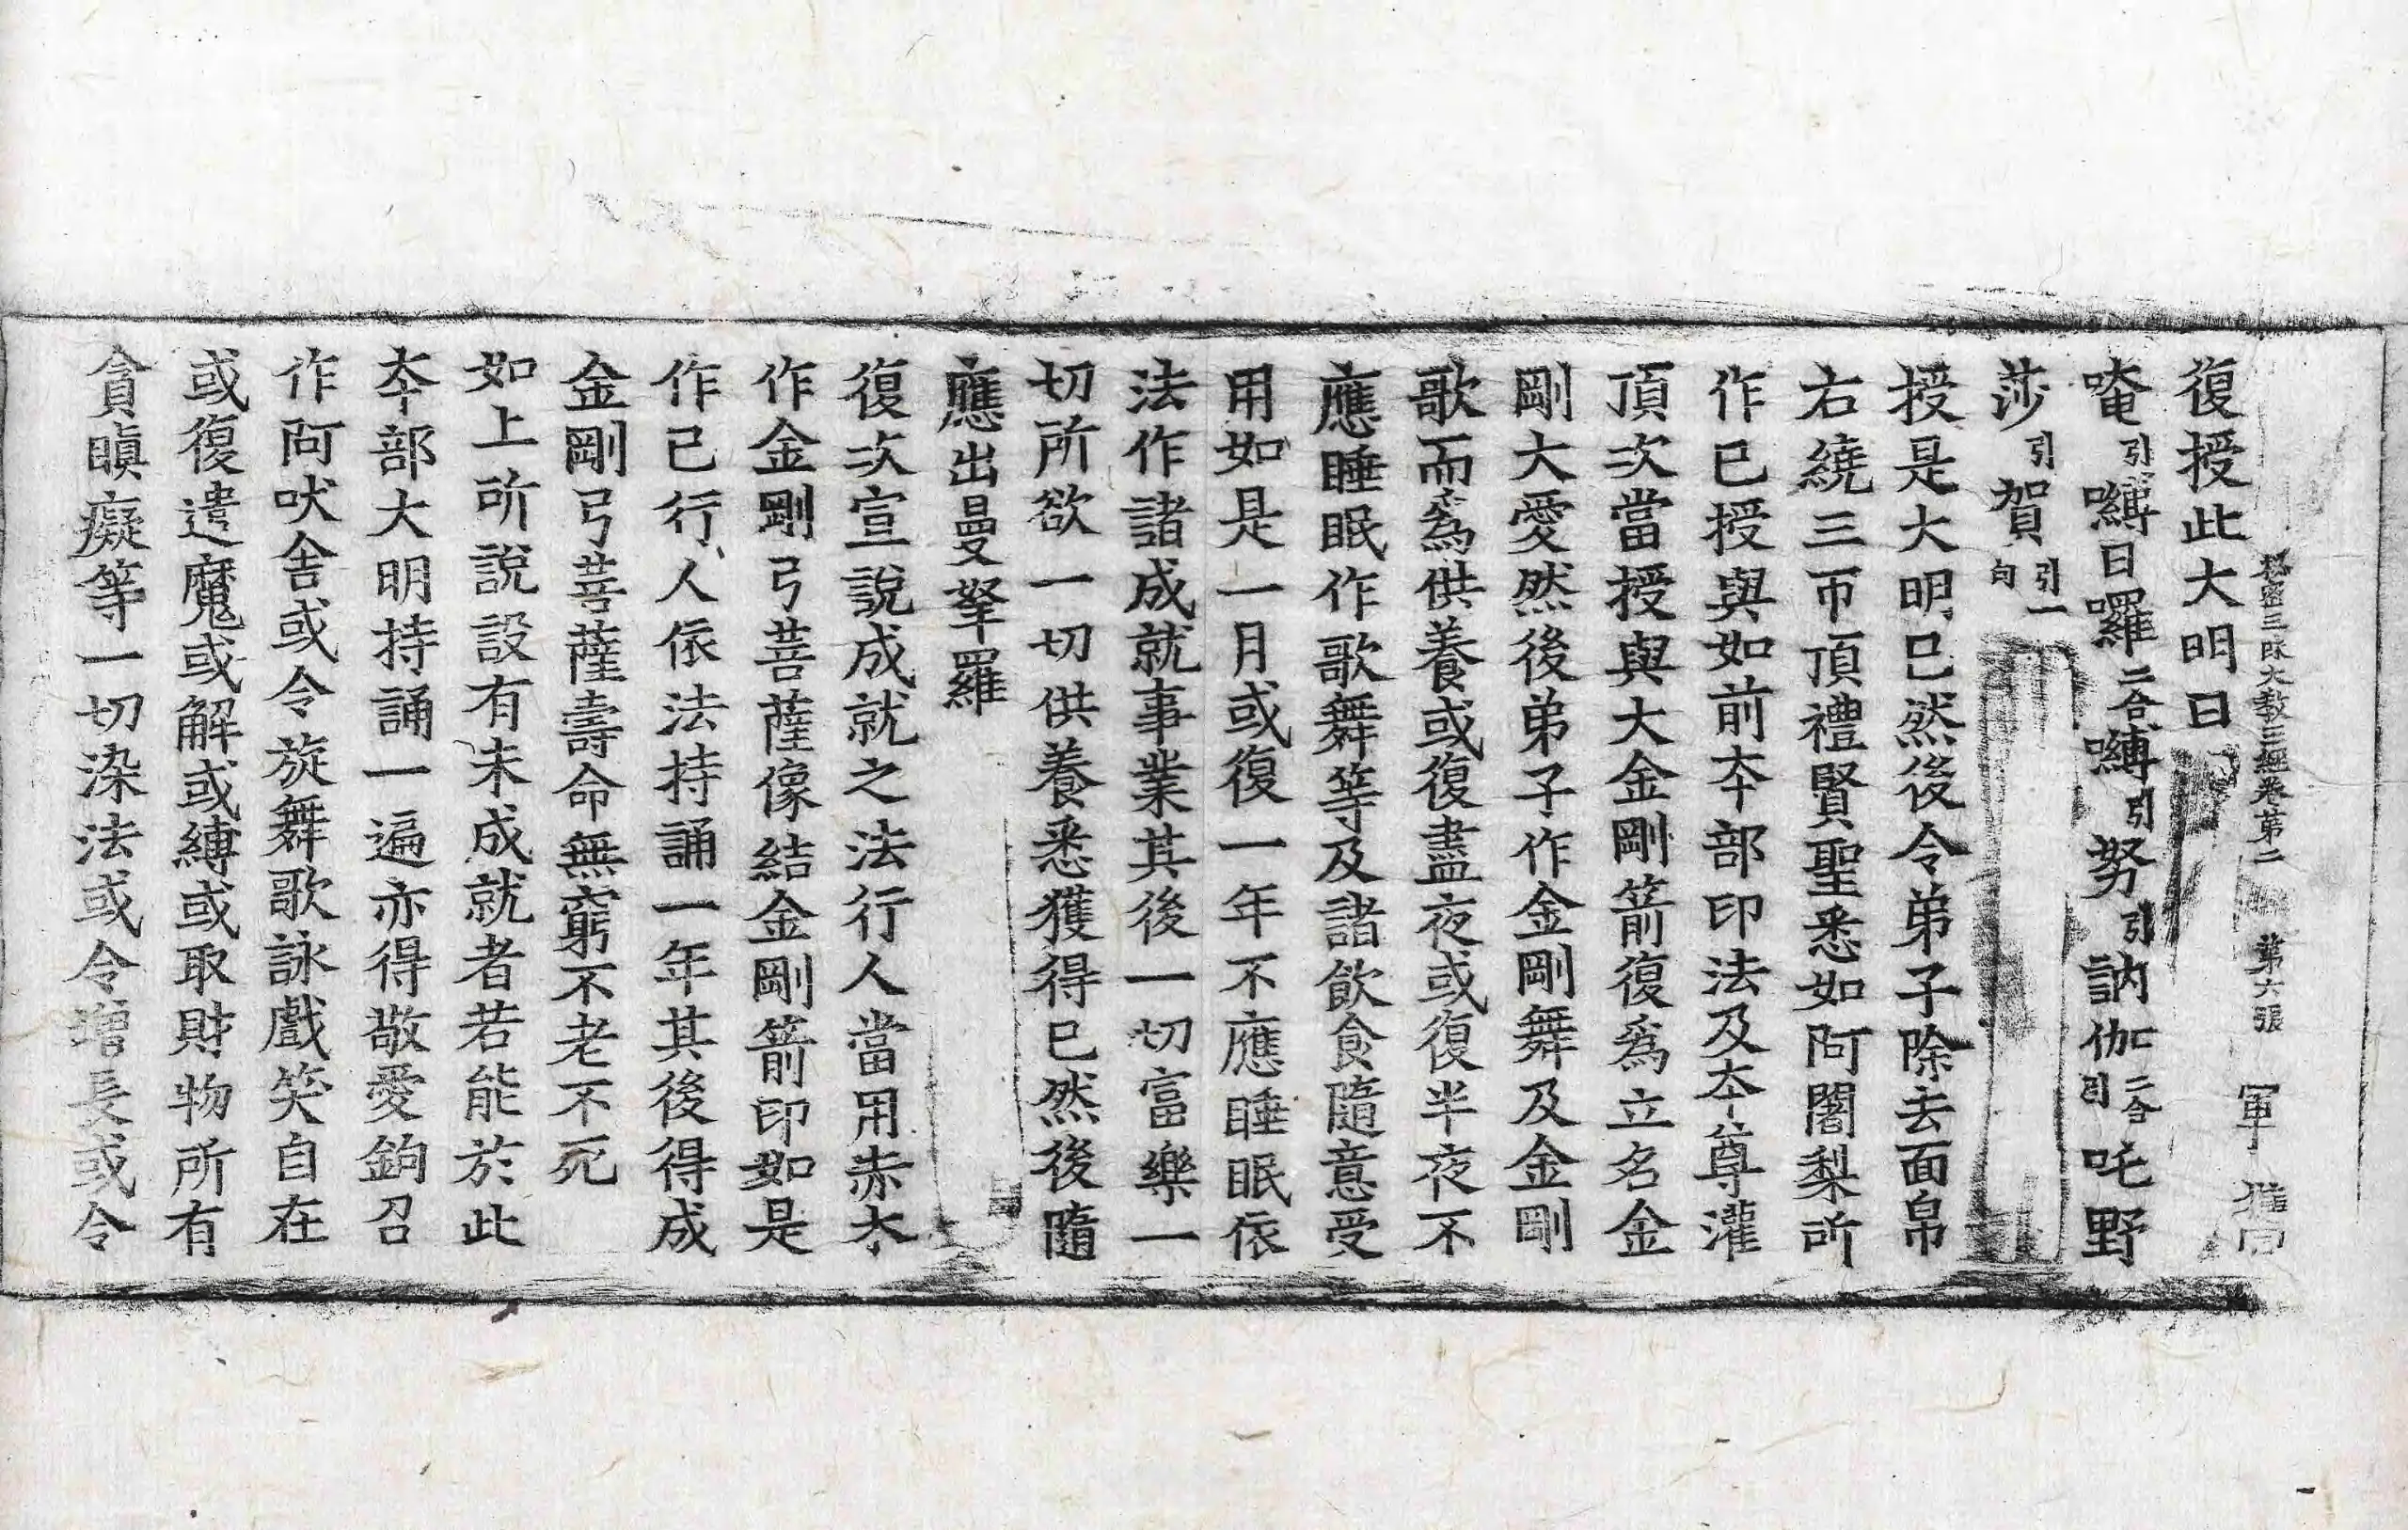 秘密三昧大教王經卷第二 第六張 軍
復授此大明曰
唵引嚩日囉二合嚩引努引訥伽二合引吒野
莎引賀引一句
授是大明已然後令弟子除去面帛
右繞三帀頂禮賢聖悉如阿闍梨所
作已授與如前夲部印法及夲尊灌
頂次當授與大金剛箭復爲立名金
剛大愛然後弟子作金剛舞及金剛
歌而爲供養或復盡夜或復半夜不
應睡眠作歌舞等及諸飮食隨意受
用如是一月或復一年不應睡眠依
法作諸成就事業其後一切富樂一
切所欲一切供養悉獲得已然後隨
應出曼拏羅
復次宣說成就之法行人當用赤木
作金剛弓菩薩像結金剛箭印如是
作已行人依法持誦一年其後得成
金剛弓菩薩壽命無窮不老不死
如上所說設有未成就者若能於此
夲部大明持誦一遍亦得敬愛鉤召
作阿吠舍或令旋舞歌詠戲笑自在
或復遣魔或解或縛或取財物所有
貪瞋癡等一切染法或令增長或令